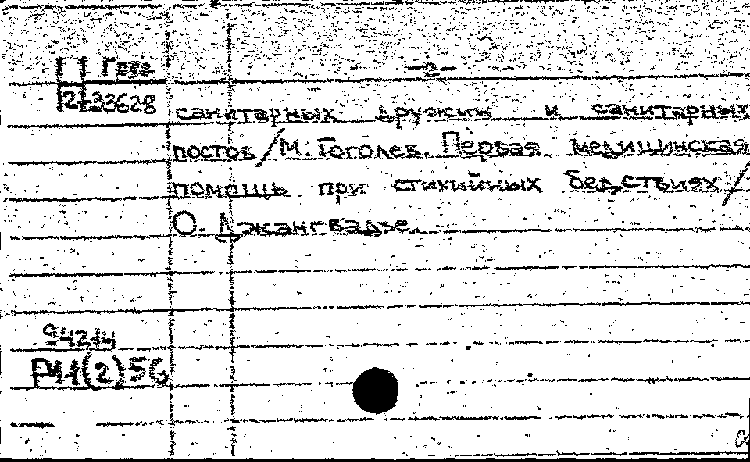 Груз. -2-
2-33628
санитарных дружин и санитарных
постов / М. Гоголев. Первая медицинская
помощь при стихийных бедствиях /
О. Джангвадзе.
94214
Р11(2)56